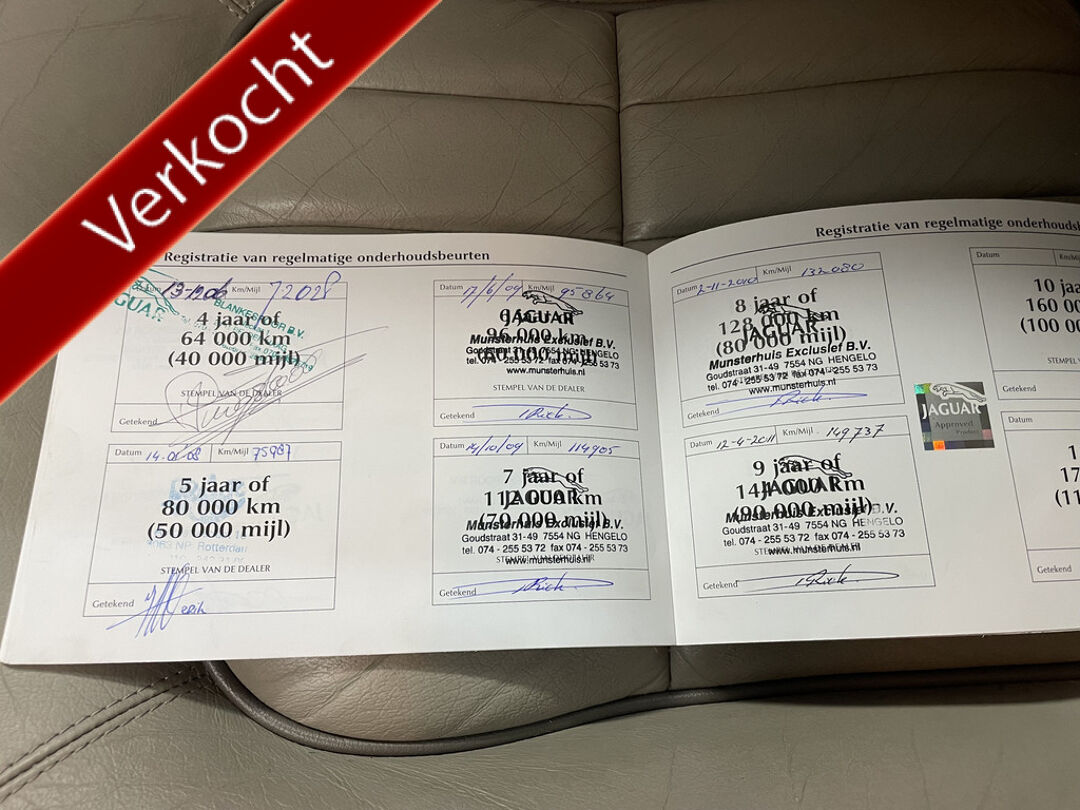 Verkocht
Registratie van regelmatige onderhoudsbeurten
Datum 13-1206 Km/Mijl 72028
JAGUAR
BLANKESPOOR B.V.
4 jaar of
64 000 km
(40 000 mijl)
STEMPEL VAN DE DEALER
Getekend
Datum 17/6/09 Km/Mijl 95864
6 jaar of
JAGUAR
96 000 km
Munsterhuis Exclusief B.V.
(60 000 mijl)
Goudstraat 31-49 7554 NG HENGELO
tel. 074 - 255 53 72 fax 074 - 255 53 73
www.munsterhuis.nl
STEMPEL VAN DE DEALER
Getekend Rick
Datum 14.01.08 Km/Mijl 75987
5 jaar of
80 000 km
(50 000 mijl)
3063 NP Rotterdam
STEMPEL VAN DE DEALER
Getekend
Datum 14/10/09 Km/Mijl 114905
7 jaar of
JAGUAR
112 000 km
(70 000 mijl)
Munsterhuis Exclusief B.V.
Goudstraat 31-49 7554 NG HENGELO
tel. 074 - 255 53 72 fax 074 - 255 53 73
STEMPEL VAN DE DEALER
www.munsterhuis.nl
Getekend Rick
Registratie van regelmatige onderhoudsb
Datum 2-11-2010 Km/Mijl 132080
8 jaar of
128 000 km
JAGUAR
(80 000 mijl)
Munsterhuis Exclusief B.V.
Goudstraat 31-49 7554 NG HENGELO
tel. 074 - 255 53 72 fax 074 - 255 53 73
www.munsterhuis.nl
Getekend Rick
Datum 12-4-2011 Km/Mijl 149737
9 jaar of
144 000 km
JAGUAR
(90 000 mijl)
Munsterhuis Exclusief B.V.
Goudstraat 31-49 7554 NG HENGELO
tel. 074 - 255 53 72 fax 074 - 255 53 73
STEMPEL VAN DE DEALER
www.munsterhuis.nl
Getekend Rick
JAGUAR
Approved
Product
Datum Km/Mij
10 jaa
160 00
(100 00
STEMP
Getekend
Datum
1
17
(11
STE
Getekend